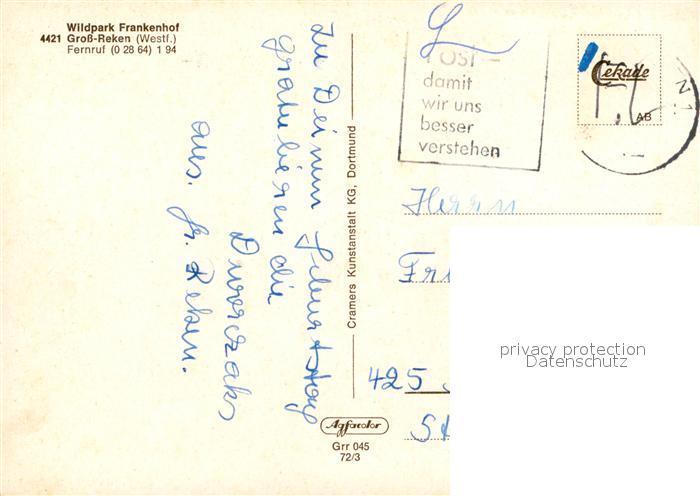 Wildpark Frankenhof
4421 Groß-Reken (Westf.)
Fernruf (0 28 64) 1 94
Zu Deinem Geburtstag
gratulieren die
Dworczaks
aus. Gr. Reken.
Cramers Kunstanstalt KG, Dortmund
Agfacolor
Grr 045
72/3
POST -
damit
wir uns
besser
verstehen
Cekade
AB
Herrn
425
privacy protection
Datenschutz